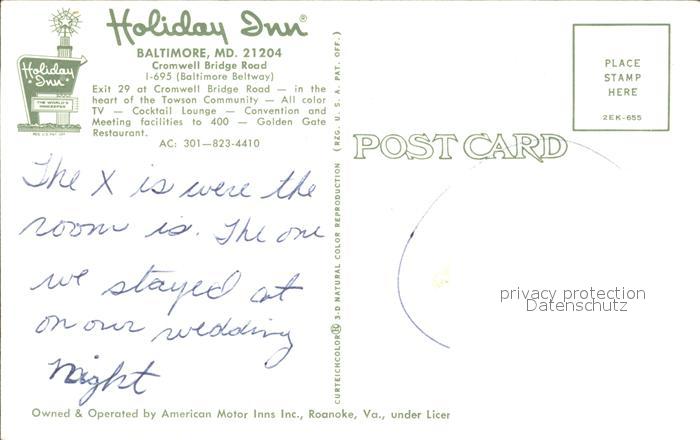 Holiday Inn®
BALTIMORE, MD. 21204
Cromwell Bridge Road
I-695 (Baltimore Beltway)
Exit 29 at Cromwell Bridge Road — in the
heart of the Towson Community — All color
TV — Cocktail Lounge — Convention and
Meeting facilities to 400 — Golden Gate
Restaurant.
AC: 301—823-4410
Holiday
Inn
THE WORLD'S
INNKEEPER
The X is were the
room is. The one
we stayed at
on our wedding
night
Owned & Operated by American Motor Inns Inc., Roanoke, Va., under Licer
CURTEICHCOLOR® 3-D NATURAL COLOR REPRODUCTION (REG. U. S. A. PAT. OFF.)
POST CARD
PLACE
STAMP
HERE
2EK-655
privacy protection
Datenschutz